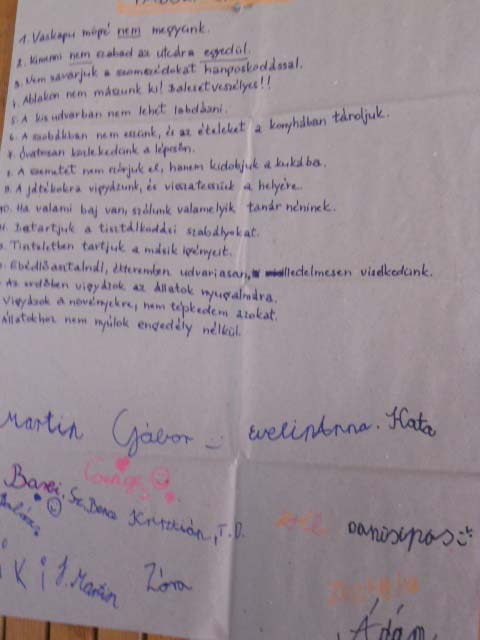 1. Vaskapu mögé nem megyünk.
2. Kimenni nem szabad az utcára egyedül.
3. Nem zavarjuk a szomszédokat hangoskodással.
4. Ablakon nem mászunk ki! Balesetveszélyes!!
5. A kis udvarban nem lehet labdázni.
6. A szobákban nem eszünk, és az ételeket a konyhában tároljuk.
7. Óvatosan közlekedünk a lépcsőn.
8. A szemetet nem szórjuk el, hanem kidobjuk a kukába.
9. A játékokra vigyázunk, és visszatesszük a helyére.
10. Ha valami baj van, szólunk valamelyik tanár néninek.
11. Betartjuk a tisztálkodási szabályokat.
Tiszteletben tartjuk a másik igényeit.
Ebédlőasztalnál, étteremben udvariasan, illedelmesen viselkedünk.
Az erdőben vigyázok az állatok nyugalmára.
Vigyázok a növényekre, nem tépkedem azokat.
Állatokhoz nem nyúlok engedély nélkül.
Martin Gábor Evelin Anna. Kata
Csenge
Barbi. Sz. Bence Krisztián, T.D.
Danisipos
Martin Zóra
Ádám